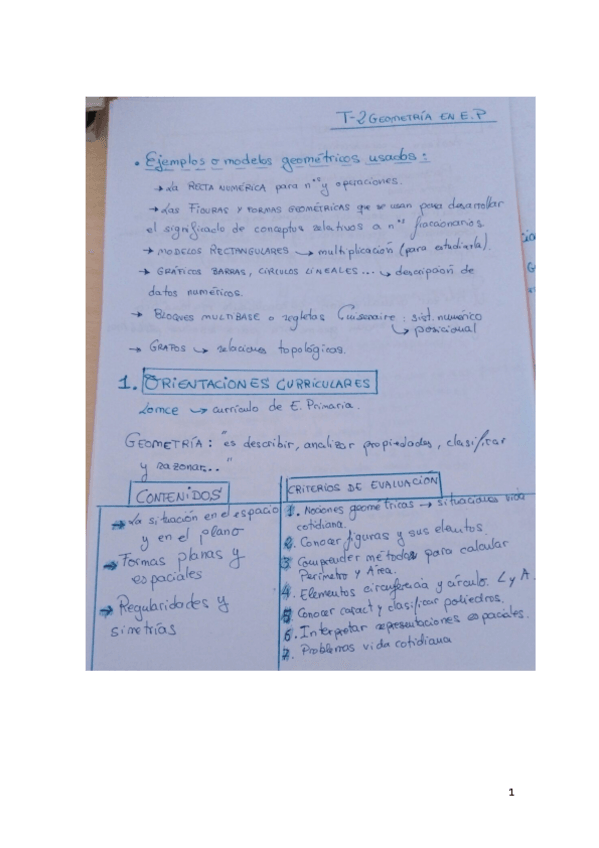 T-2 GEOMETRÍA EN E.P
• Ejemplos o modelos geométricos usados:
→ La RECTA NUMÉRICA para nºs y operaciones.
→ Las FIGURAS Y FORMAS GEOMÉTRICAS que se usan para desarrollar
el significado de conceptos relativos a nºs fraccionarios.
→ MODELOS RECTANGULARES → multiplicación (para estudiarla).
→ GRÁFICOS BARRAS, CÍRCULOS LINEALES... → descripción de
datos numéricos.
→ BLOQUES MULTIBASE o regletas Cuisenaire: sist. numérico
↳ posicional
→ GRAFOS → relaciones topológicas.
1. ORIENTACIONES CURRICULARES
Lomce → currículo de E. Primaria.
GEOMETRÍA: "es describir, analizar propiedades, clasificar
y razonar..."
CONTENIDOS
→ La situación en el espacio
y en el plano
→ Formas planas y
espaciales
→ Regularidades y
simetrías
CRITERIOS DE EVALUACIÓN
1. Nociones geométricas → situaciones vida
cotidiana.
2. Conocer figuras y sus elementos
3. Comprender métodos para calcular
Perímetro y Área.
4. Elementos circunferencia y círculo. L y A.
5. Conocer caract y clasificar poliedros.
6. Interpretar representaciones espaciales.
7. Problemas vida cotidiana
1